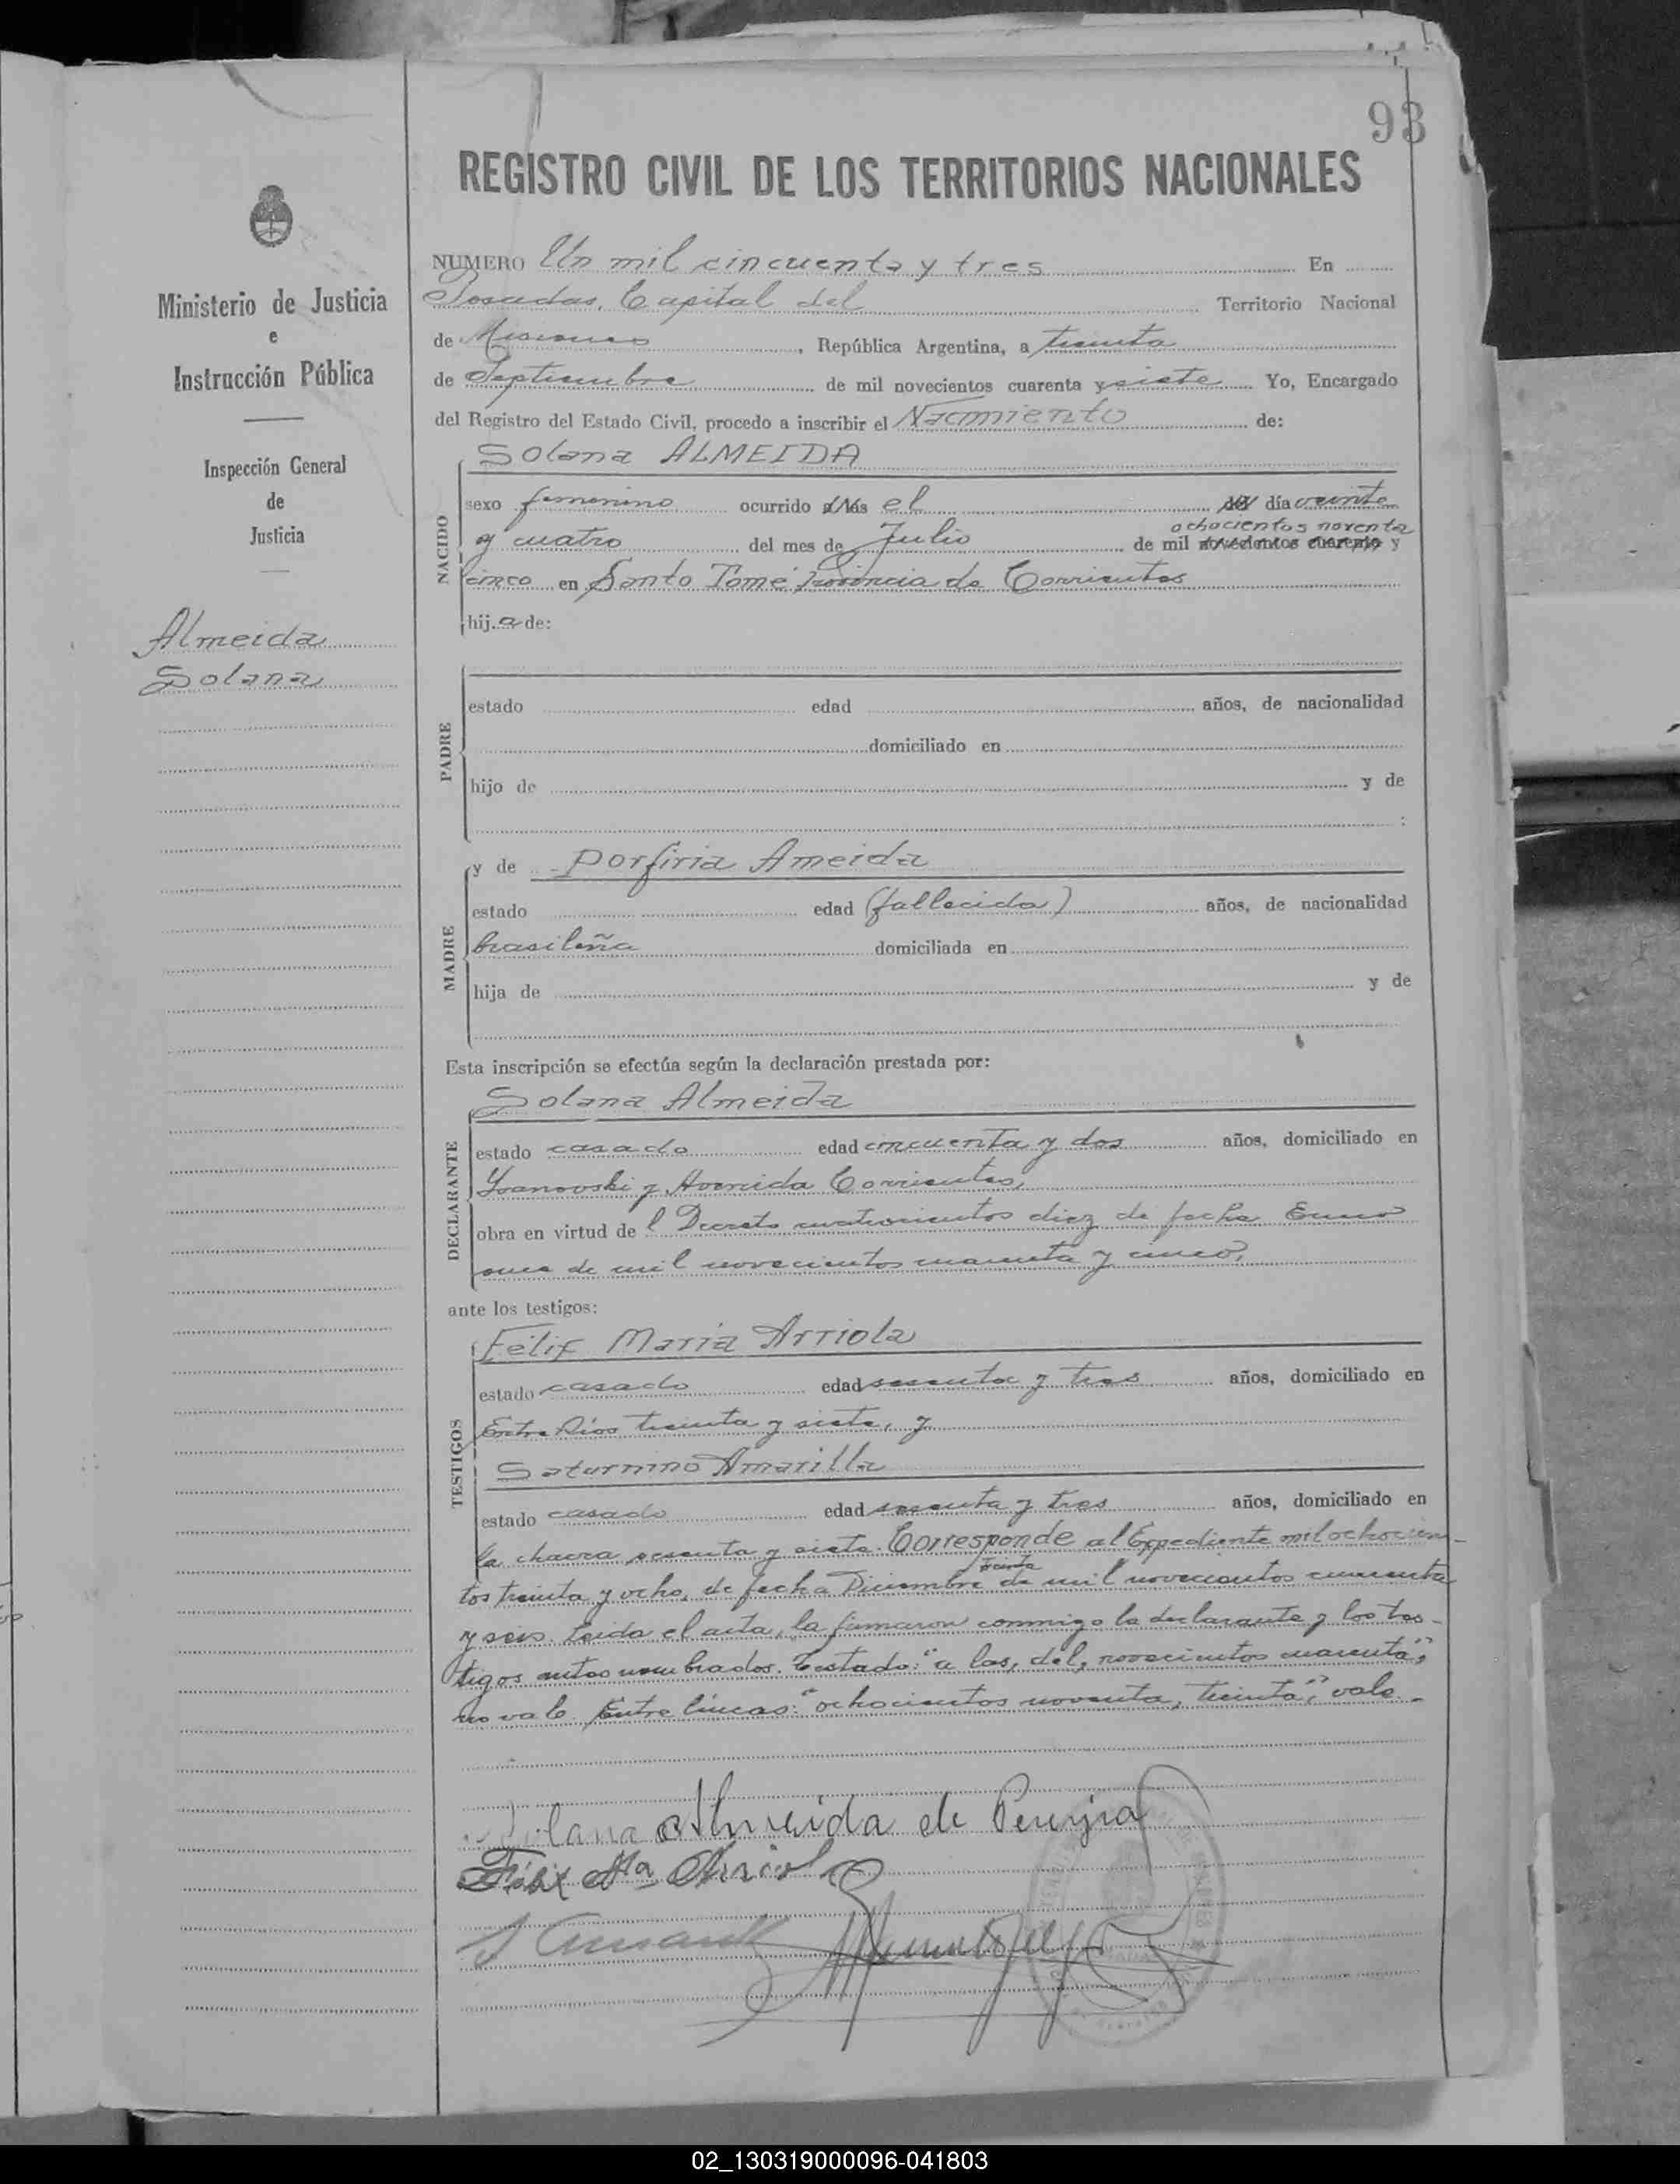 93
REGISTRO CIVIL DE LOS TERRITORIOS NACIONALES
Ministerio de Justicia
e
Instrucción Pública
Inspección General
de
Justicia
Almeida
Solana
NUMERO Un mil cincuenta y tres En
Posadas, Capital del Territorio Nacional
de Misiones, República Argentina, a treinta
de Septiembre de mil novecientos cuarenta y siete Yo, Encargado
del Registro del Estado Civil, procedo a inscribir el Nacimiento de:
Solana ALMEIDA
NACIDO
sexo femenino ocurrido a las el del día veinte
ochocientos noventa
y cuatro del mes de Julio de mil novecientos cuarenta y
cinco en Santo Tomé, Provincia de Corrientes
hija de:
PADRE
estado edad años, de nacionalidad
domiciliado en
hijo de y de
:
MADRE
y de Porfiria Ameida
estado edad (fallecida) años, de nacionalidad
brasileña domiciliada en
hija de y de
Esta inscripción se efectúa según la declaración prestada por:
Solana Almeida
DECLARANTE
estado casado edad cincuenta y dos años, domiciliado en
Yvanovski y Avenida Corrientes,
obra en virtud de l Decreto cuatrocientos diez de fecha Enero
once de mil novecientos cuarenta y cinco,
ante los testigos:
Félix María Arriola
TESTIGOS
estado casado edad sesenta y tres años, domiciliado en
Entre Ríos treinta y siete, y
Saturnino Amarilla
estado casado edad sesenta y tres años, domiciliado en
la chacra sesenta y siete. Corresponde al Expediente mil ochocien-
treinta
tos treinta y ocho, de fecha Diciembre de mil novecientos cuarenta
y seis. Leida el acta, la firmaron conmigo la declarante y los tes-
tigos antes nombrados. Testado: "a las, del, novecientos cuarenta";
no vale. Entre líneas: "ochocientos noventa, treinta"; vale.-
Solana Almeida de Pereyra
Félix Ma Arriola
S Amarilla
02_130319000096-041803